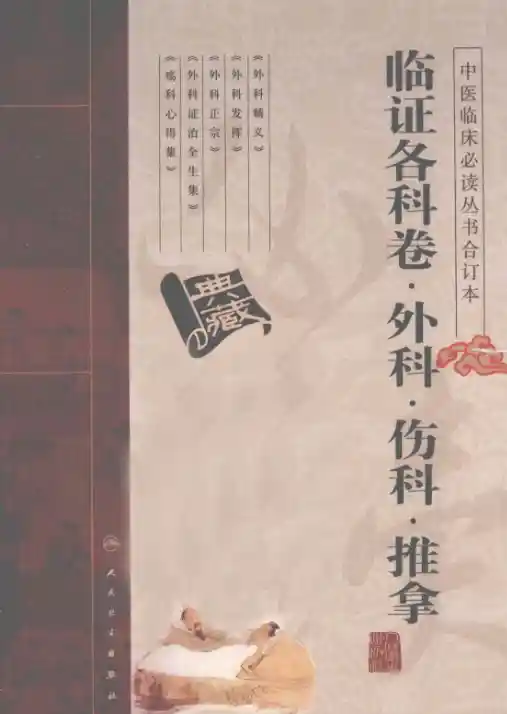 中医临床必读丛书合订本
临证各科卷·外科·伤科·推拿
《外科精义》
《外科发挥》
《外科正宗》
《外科证治全生集》
《疡科心得集》
典藏
人民卫生出版社